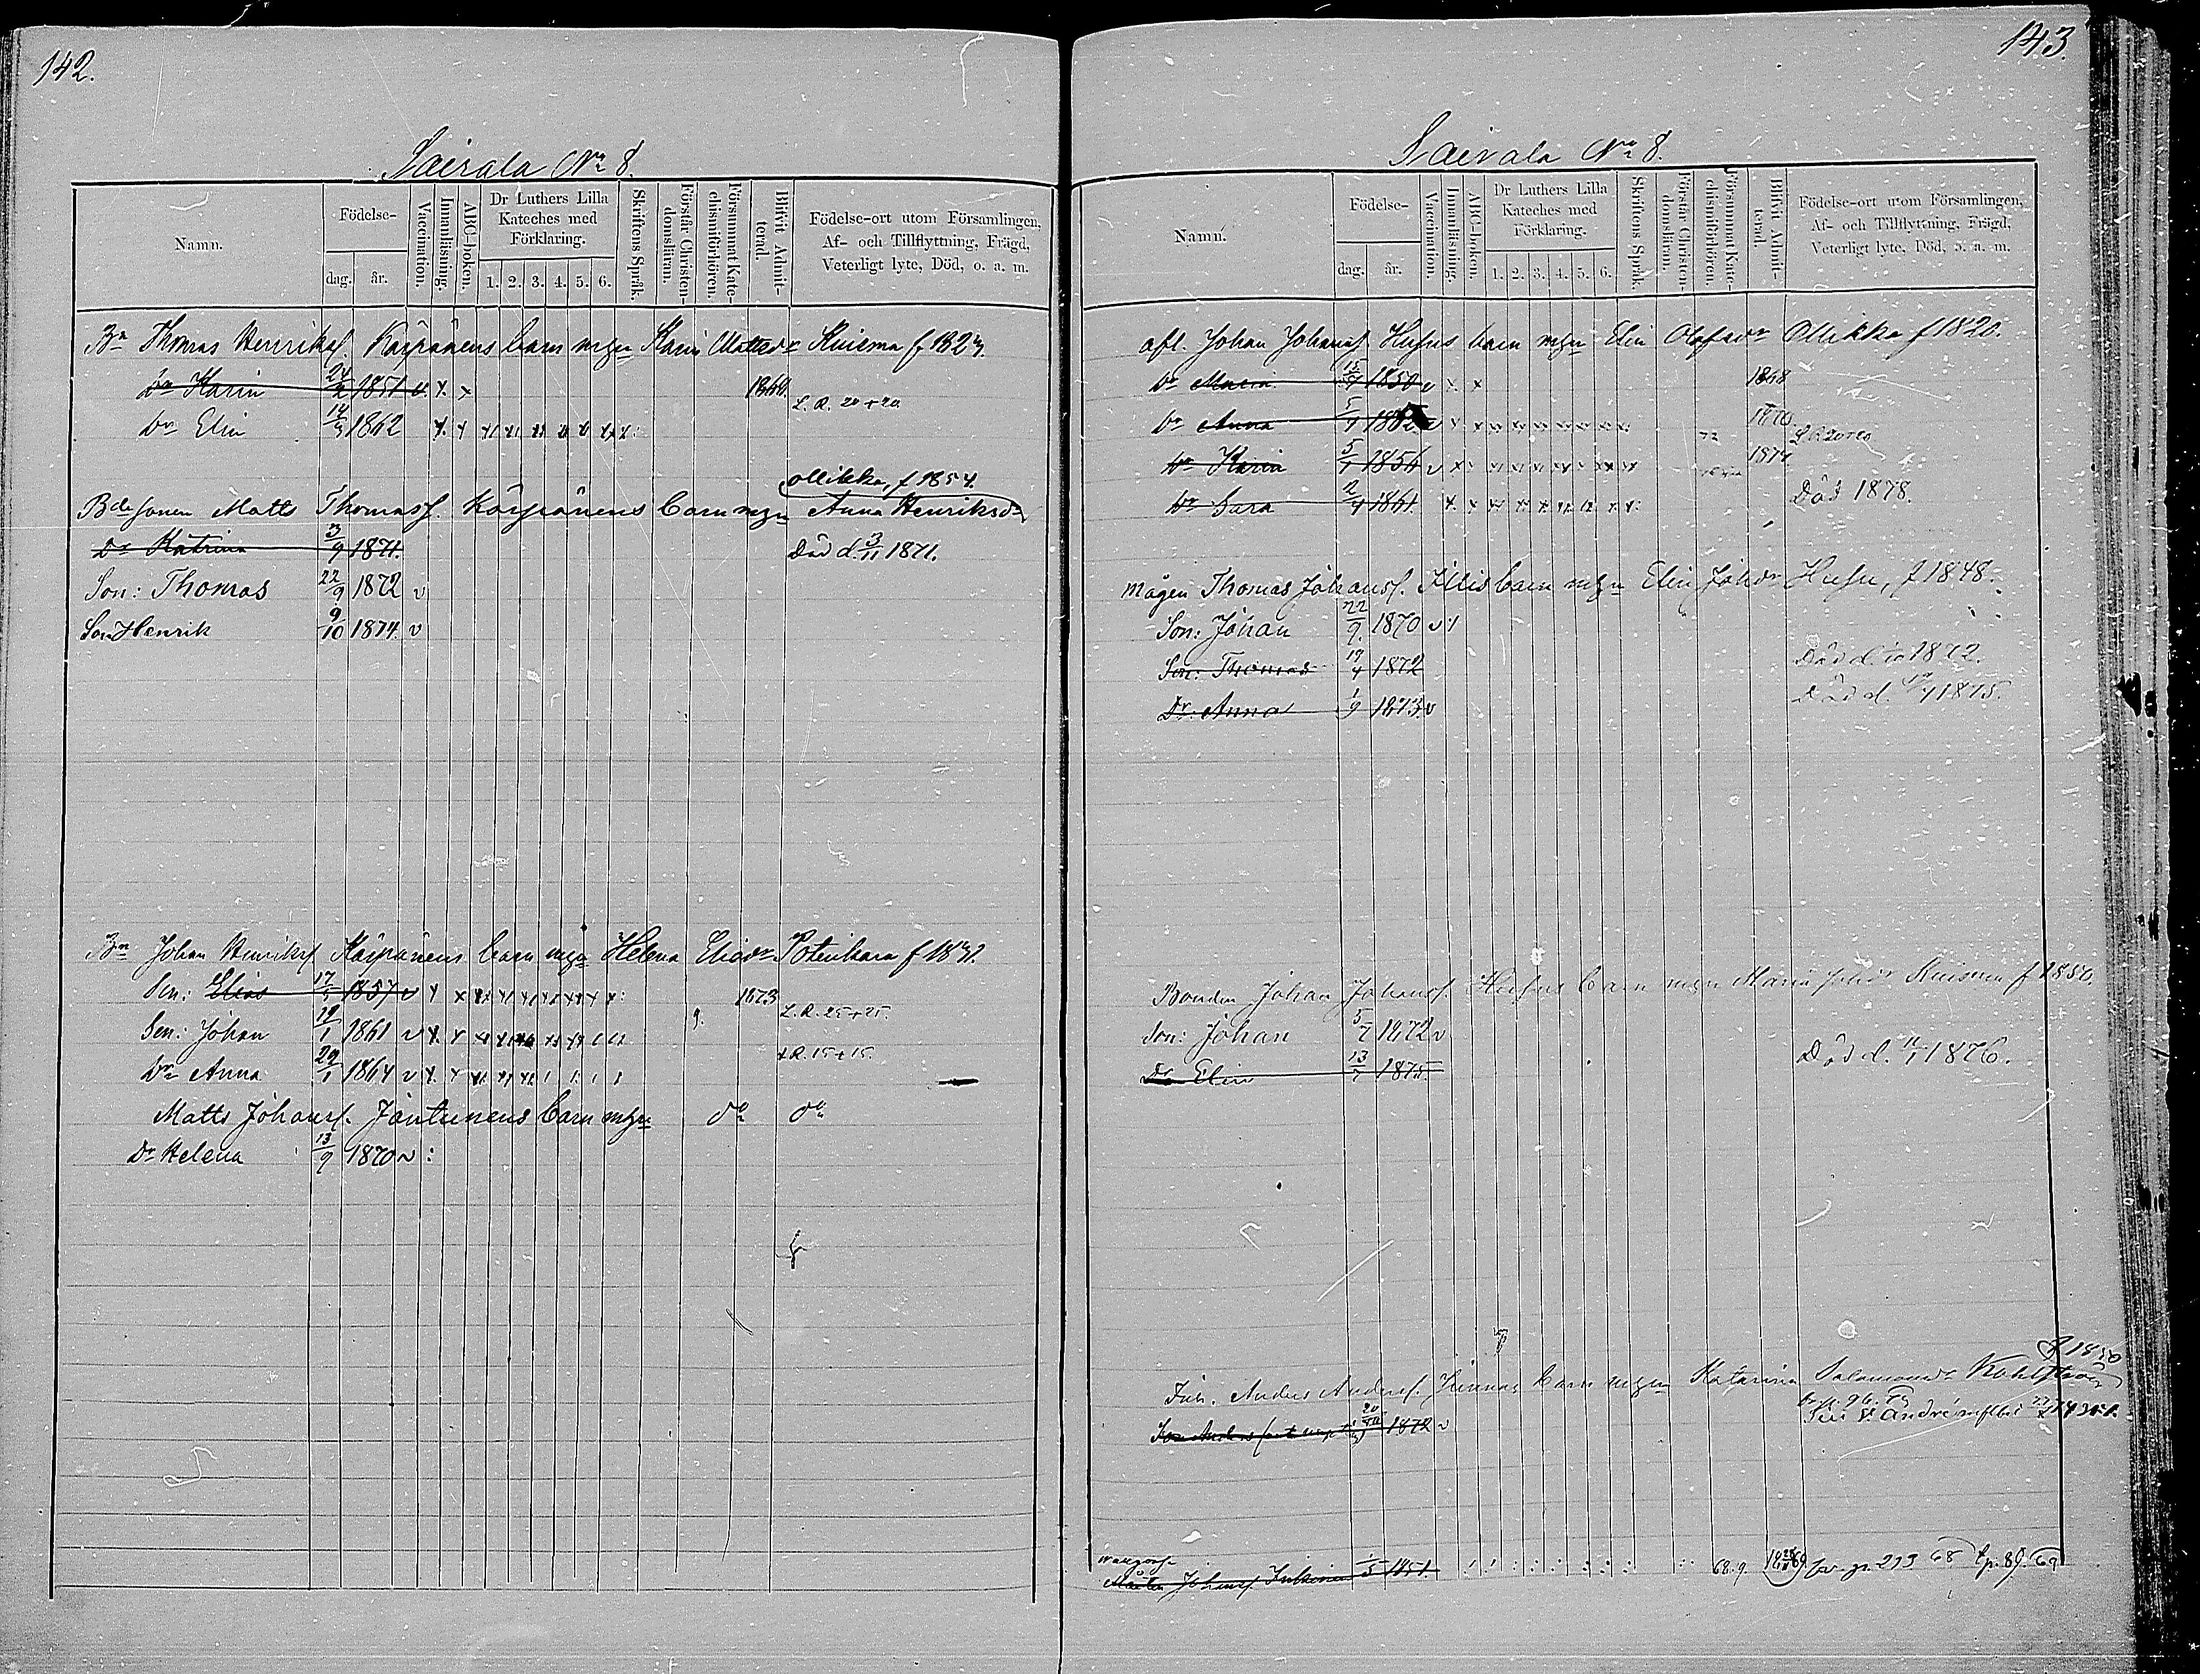 142.
Sairala No 8.
Namn.
Födelse-
dag.
år.
Vaccination.
Innanläsning.
ABC-boken.
Dr Luthers Lilla
Kateches med
Förklaring.
1. 2. 3. 4. 5. 6.
Skriftens Språk.
Förstår Christendomsläran.
Försummat Katechismiförhören.
Blifvit Admitterad.
Födelse-ort utom Församlingen,
Af- och Tillflyttning, Frägd,
Veterligt lyte, Död, o. a. m.
Bn Thomas Henriksf. Kärpänens barn mgn Karin Mattsdr Kuisma f 1823.
Dr Karin 24/2 1851 v. x x 1868.
L. R. 20+20
Dr Elin 14/3 1862
Ollikka, f 1854.
Bdesonen Matts Thomasf. Kärpänens barn mgn Anna Henriksdr
Dr Katrina 3/9 1871. Död d. 3/11 1871.
Son: Thomas 22/9 1872 v
Son Henrik 9/10 1874. v
Bn Johan Henriksf Kärpänens barn mgn Helena Eliædr Potinkara f 1831.
Son: Elias 17/5 1857 v 1873
L. R. 25+25.
Son: Johan 19/1 1861 v 9.
L. R. 15+15.
Dr Anna 29/1 1864 v
Matts Johansf. Jäntunens barn mgn do do
Dr Helena 13/9 1870 v :
143.
Sairala No 8.
Namn.
Födelse-
dag.
år.
Vaccination.
Innanläsning.
ABC-boken.
Dr Luthers Lilla
Kateches med
Förklaring.
1. 2. 3. 4. 5. 6.
Skriftens Språk.
Förstår Christendomsläran.
Försummat Katechismiförhören.
Blifvit Admitterad.
Födelse-ort utom Församlingen,
Af- och Tillflyttning, Frägd,
Veterligt lyte, Död, o. a. m.
afl. Johan Johansf Husus barn mgn Elin Olofsdr Ollikka f 1820.
Dr Maria 1850 v x x 1868
Dr Anna 5/1 72 1870.
Dr Karin 5/1 1856 v 1874
Dr Sara 2/4 1861 Död 1878.
mågen Thomas Johansf. Illis barn mgn Elin Johdr Husu, f 1848.
Son: Johan 22/9. 1870 v
Son: Thomas 19/4 1872 Död d. 1872.
Dr. Anna 1/9 1873. v Död d. 1875.
Bonden Johan Johansf. Husus barn mgn Maria Johdr Kuisma f 1850.
Son: Johan 5/7 1872 v
Dr Elin 13/7 1875. Död d. 11/1 1876.
f 1850
Inh. Anders Andersf. Hinnas barn mgn Katarina Salomonsdr
Son Anders 20/10 1872 v
Mårten Johansf 1851. 68.9. 68 69